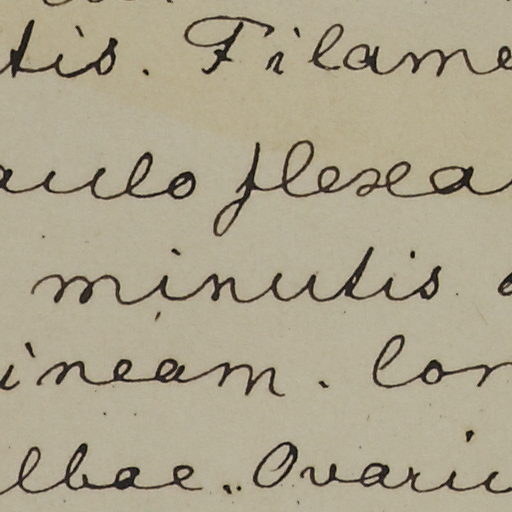 tis. Filame
aulo flexa
minutis
ineam. lon
lbae.. Ovariu